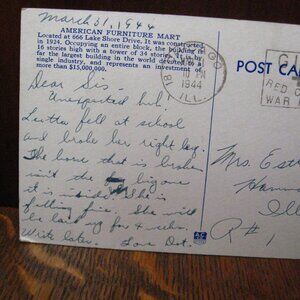 March 31, 1944
AMERICAN FURNITURE MART
Located at 666 Lake Shore Drive. It was constructed
in 1924. Occupying an entire block, the building is
16 stories high with a tower of 34 stories. It is by
far the largest building in the world devoted to a
single industry, and represents an investment of
more than $15,000,000.
CHICAGO
1944
ILL.
POST CA
RED C
WAR
Dear Sis-
Unexpected but
fell at school
and broke her right leg.
The bone that is broken
isn't the big one
it is inside. She is
getting fine. She will
be laid up for 4 weeks.
Write later. Love Dot.
Mrs. Est
Ill
R#1